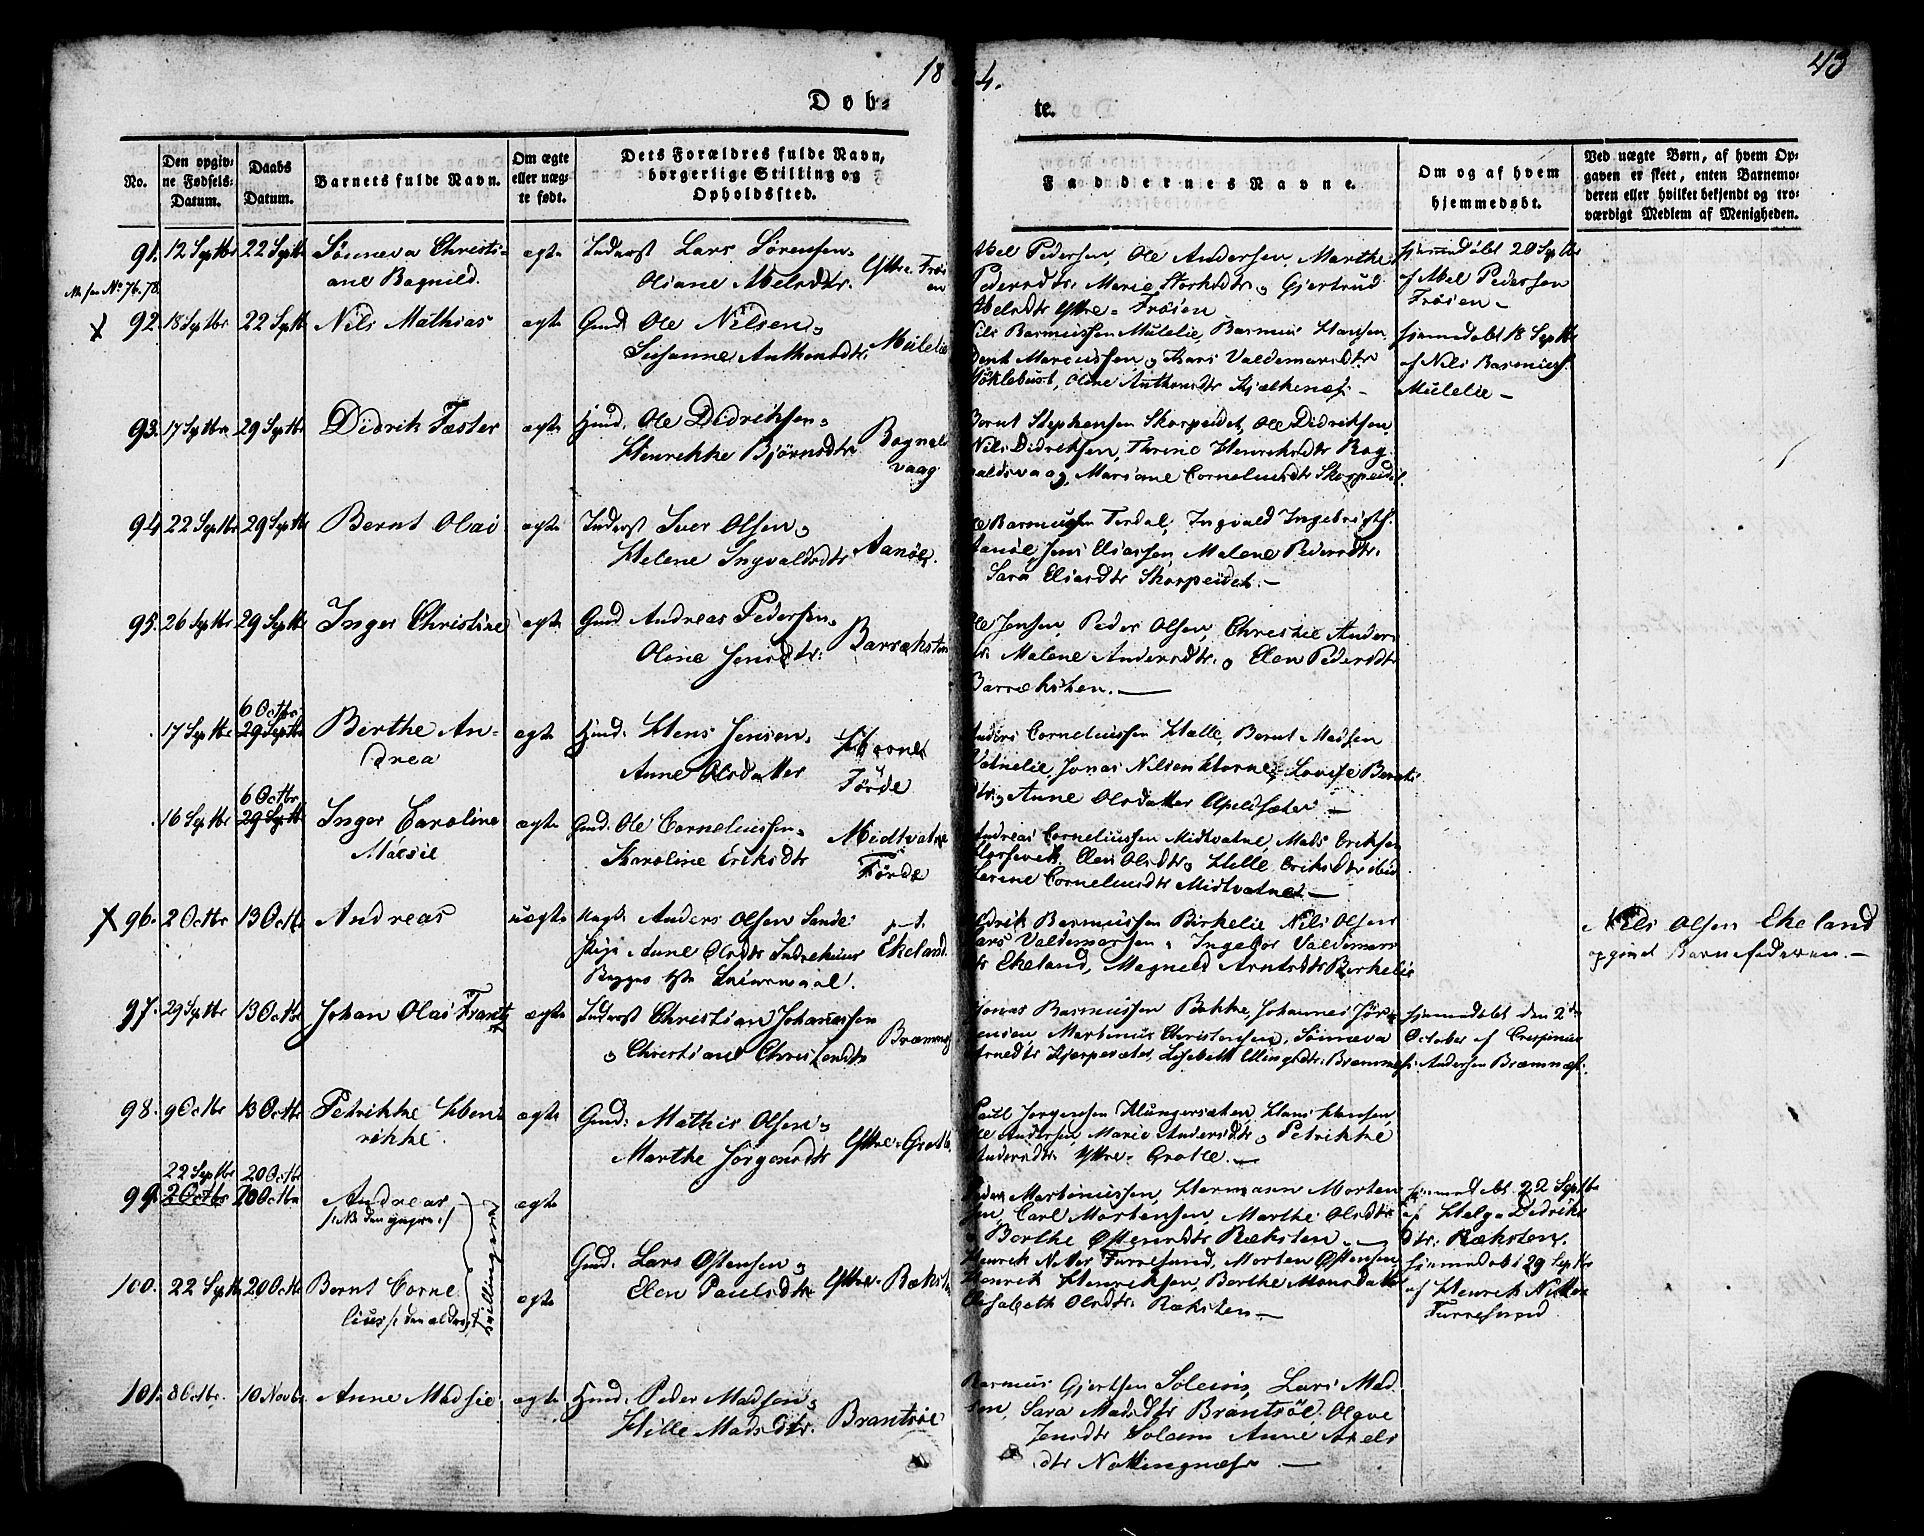 18 4. 43
Døb- te.
No.
Den opgiv-
ne Fødsels-
Datum.
Daabs
Datum.
Barnets fulde Navn.
Om ægte
eller uæg-
te født.
Dets Forældres fulde Navn,
borgerlige Stilling og
Opholdssted.
Faddernes Navne.
Om og af hvem
hjemmedøbt.
Ved uægte Børn, af hvem Op-
gaven er skeet, enten Barnemo-
deren eller hvilket bekjendt og tro-
værdigt Medlem af Menigheden.
91. 12 Septbr 22 Septbr Sønneva Christi-
ane Ragnild.
ægte Inderst Lars Sørensen
Oliane Abelsdtr. Yttre Frøi
en
Abel Pedersen, Ole Andersen, Marthe
Pedersdtr. Marie Storksdtr og Gjertrud
Abelsdtr Yttre-Frøien
hjemmedøbt 20 Septbr
af Abel Pedersen
Frøien -
No 76.78.
x 92. 18 Septbr 22 Septbr Nils Mathias
ægte Gmd. Ole Nilsen og
Susanne Anthonsdtr. Mulelie
Nils Rasmussen Mulelie, Rasmus Hansen,
Bent Marcussen og Kari Valdemarsdtr
Myklebust, Oline Anthonsdtr Hjælkenes -
hjemmedøbt 18 Septbr
af Nils Rasmuss.
Mulelie -
93. 17 Septbr 29 Septbr Didrik Fæster
ægte Hmd. Ole Didriksen
Henrikke Bjørnsdtr Rognalds
vaag
Bernt Stephensen Skorpeidet, Ole Didriksen,
Nils Didriksen, Thrine Henriksdtr Rog-
naldsvaag, Mariane Corneliusdtr Skorpeidet.
94 22 Septbr 29 Septbr Bernt Olai
ægte Inderst Iver Olsen og
Helene Ingvaldsdtr Aanøe.
Ole Rasmussen Terdal, Ingvald Ingebrigts.
Aanøe, Jens Eliassen, Malene Pedersdtr.
Sara Eliasdtr Skorpeidet. -
95. 26 Septbr 29 Septbr Inger Christine
ægte Gmd Andreas Pedersen
Oline Jensdtr: Barræksten
Ole Jensen, Peder Olsen, Christie Anders-
dtr. Malene Andersdtr. og Elen Pedersdtr
Barræksten. -
17 Septbr 6 Octbr
29 Septbr Birthe An-
drea
ægte Hmd. Hans Jensen
Anne Olsdatter Horne
Førde
Anders Corneliussen Hælle, Bernt Madsen
Vatnelie, Jonas Nilsen Horne, Lovise Bernts-
dtr og Anne Olsdatter Apelsæter -
16 Septbr 6 Octbr
29 Septbr Inger Caroline
Marie
ægte Gmd. Ole Corneliussen
Karoline Eriksdtr Midtvatne
Førde
Andreas Corneliussen Midtvatne, Mads Eriksen
Elen Olsdtr og Hille Eriksdtr ibid
Serine Corneliusdtr Midtvatnet -
x 96. 2 Octbr 13 Octbr Andreas
uægte Ungk. Anders Olsen Sande
Pige Anne Olsdtr
Ekeland.
Didrik Rasmussen Birkelie, Nils Olsen
Lars Valdemarsen, Ingebor Valdemars-
dtr Ekeland, Magnild Arntsdtr Berkelie
Nils Olsen Ekeland
opgivet Barnefaderen. -
97. 29 Septbr 13 Octbr Johan Olai Frantz
ægte Inderst Christian Johannessen
og Christiane Christensdtr Bræmnes
Jonas Rasmussen Bakke, Johannes Jør-
gensen, Martinus Christensen, Sønneva
Arnedtr Hjorpesæter, Lisebett Ellingsdtr. Bræmnes.
hjemmedøbt den 2den
October af Crespinus
Andersen Bræmnæs.
98. 9 Octbr 13 Octbr Petrikke Hen-
rikke.
ægte Gmd: Mathis Olsen og
Marthe Jørgensdtr Yttre-Grotle
Poul Jørgensen Klungersæten, Hans Hansen,
Ole Andersen, Marie Andersdtr og Petrikke
Andersdtr Yttre-Grotle. -
99. 22 Septbr
2 Octbr 20 Octbr
20 Octbr Andreas
/: NB den yngre :/
Tvillinger
ægte
Gmd. Lars Østensen og
Elen Paulsdtr Yttre-Ræksten
Peder Martinussen, Hermann Morten-
sen, Carl Mortensen, Marthe Olsdtr
og Berthe Østensdtr Ræksten. -
hjemmedøbt 22 Septbr
af Helga Didriks-
dtr. Ræksten.
100. 22 Septbr 20 Octbr Bernt Corne-
lius /: den ældre :/
ægte
Henrik Nitter Furresund, Morten Østensen
Henrik Henriksen, Berthe Monsdatter
Elisabeth Olsdtr. Ræksten -
hjemmedøbt 29 Septbr
af Henrik Nitter
Furresund
101. 8 Octbr. 10 Novbr Anne Madsie
ægte Hmd. Peder Madsen og
Hille Madsdtr. Brantsøe
Rasmus Gjertsen Solem, Lars Mad-
sen, Sara Madsdtr Brantsøe, Olave
Jensdtr Solem Anne Axels-
dtr Nottingnæs -